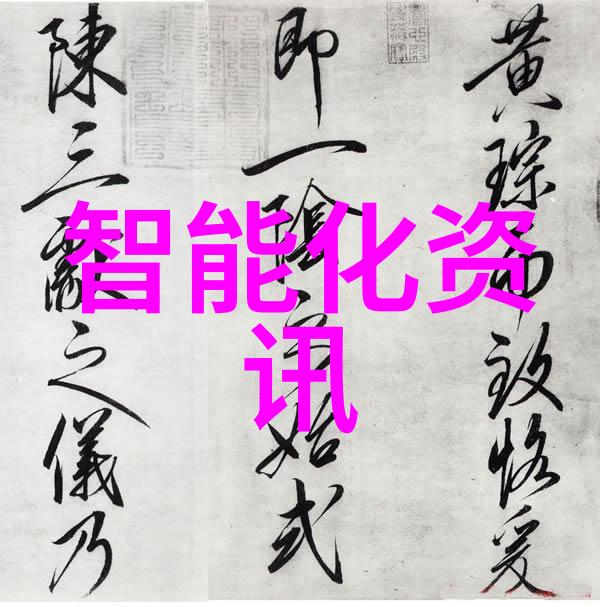 黄琮而致恪爰
即一陰始式
陳三獻之儀乃
智能化资
讯